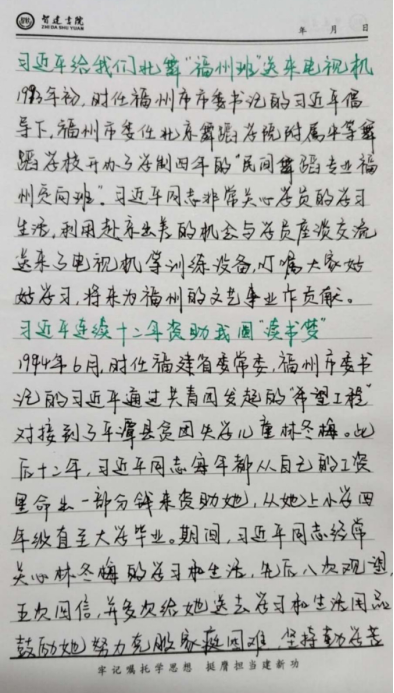 智达书院
ZHI DA SHU YUAN
年 月 日
习近平给我们北舞“福州班”送来电视机
1993年初,时任福州市市委书记的习近平倡
导下,福州市委在北京舞蹈学院附属中等舞
蹈学校开办了学制四年的“民间舞蹈专业福
州定向班”。习近平同志非常关心学员的学习
生活,利用赴京出差的机会与学员座谈交流
送来了电视机等训练设备,叮嘱大家好
好学习,将来为福州的文艺事业作贡献。
习近平连续十二年资助我圆“读书梦”
1994年6月,时任福建省委常委,福州市委书
记的习近平通过共青团发起的“希望工程”
对接到了平潭县贫困失学儿童林冬梅。此
后十二年,习近平同志每年都从自己的工资
里拿出一部分钱来资助她,从她上小学四
年级直至大学毕业。期间,习近平同志经常
关心林冬梅的学习和生活,先后八次观望,
五次回信,并多次给她送去学习和生活用品
鼓励她努力克服家庭困难,坚持勤学苦
牢记嘱托学思想 挺膺担当建新功